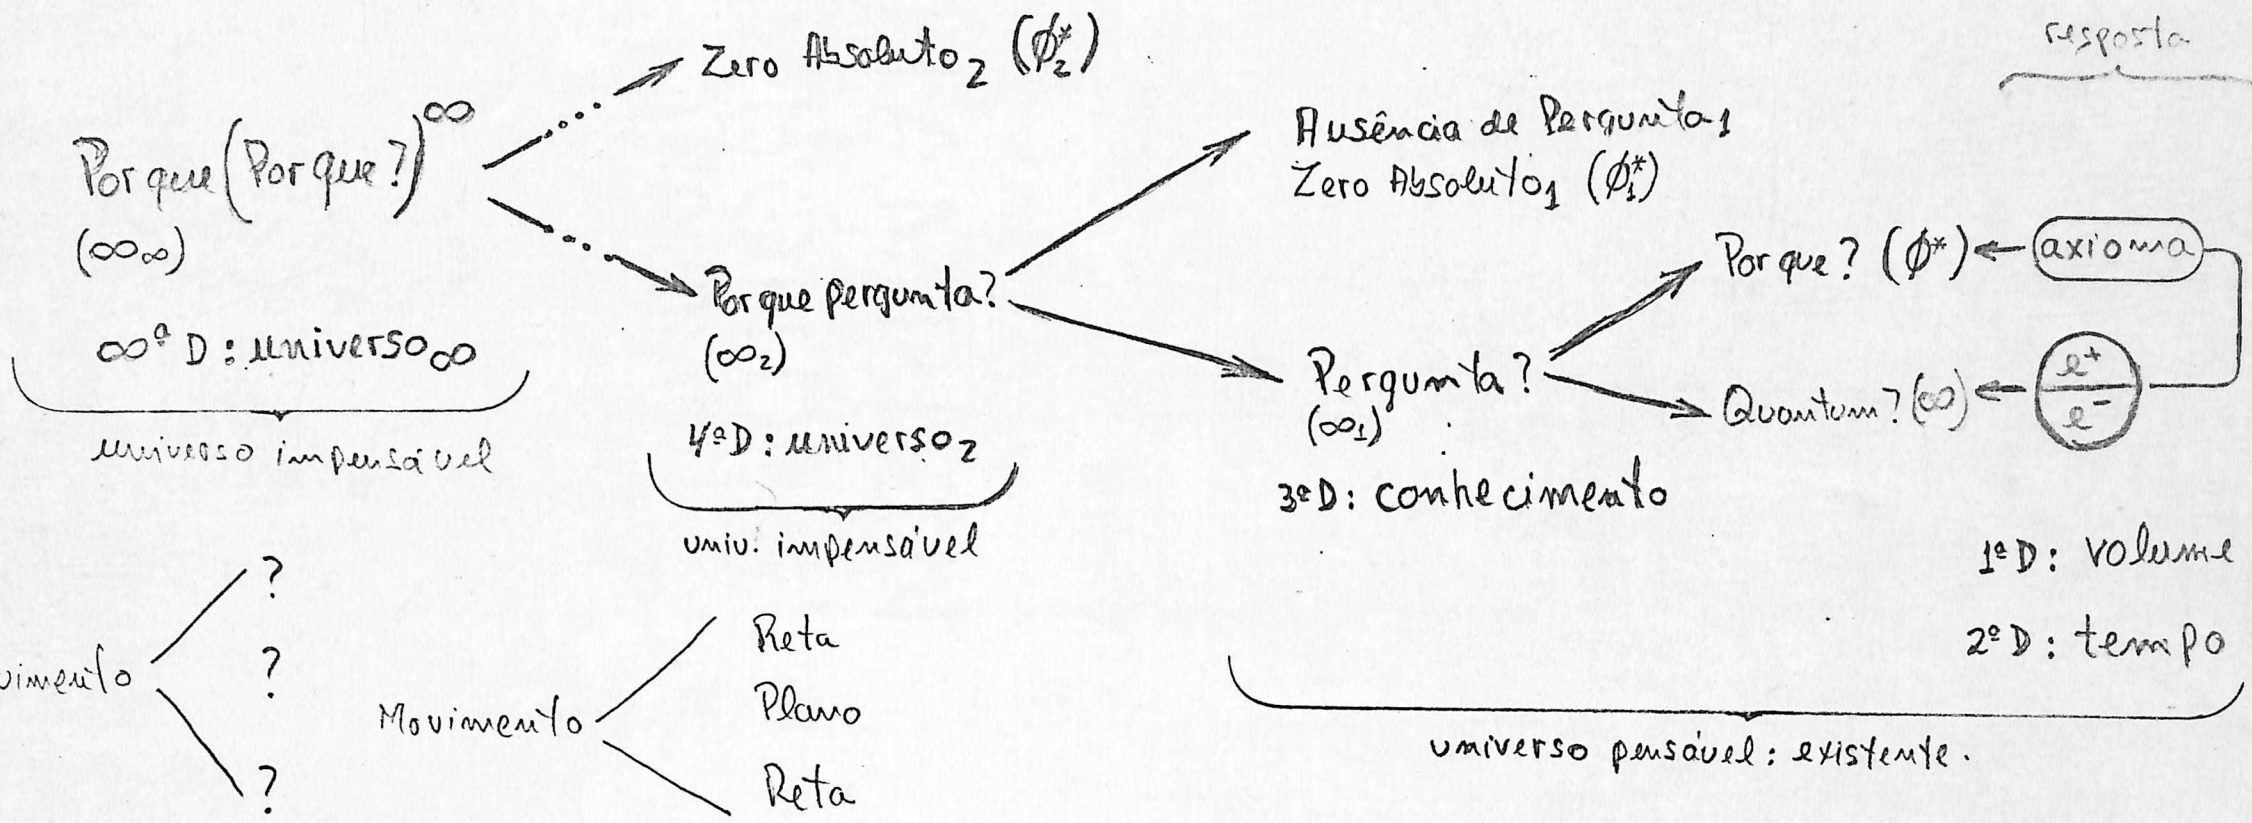 resposta
Zero Absoluto₂ (ϕ₂*)
Porque (Porque?)^∞
(∞∞)
∞ª D: universo∞
universo impensável
Porque pergunta?
(∞₂)
4ª D: universo₂
univ. impensável
Ausência de Pergunta₁
Zero Absoluto₁ (ϕ₁*)
Pergunta?
(∞₁)
3ª D: conhecimento
Porque? (ϕ*) ← axioma
Quantum? (∞) ← e⁺
e⁻
1ª D: volume
2ª D: tempo
universo pensável: existente.
vimento
?
?
?
Movimento
Reta
Plano
Reta